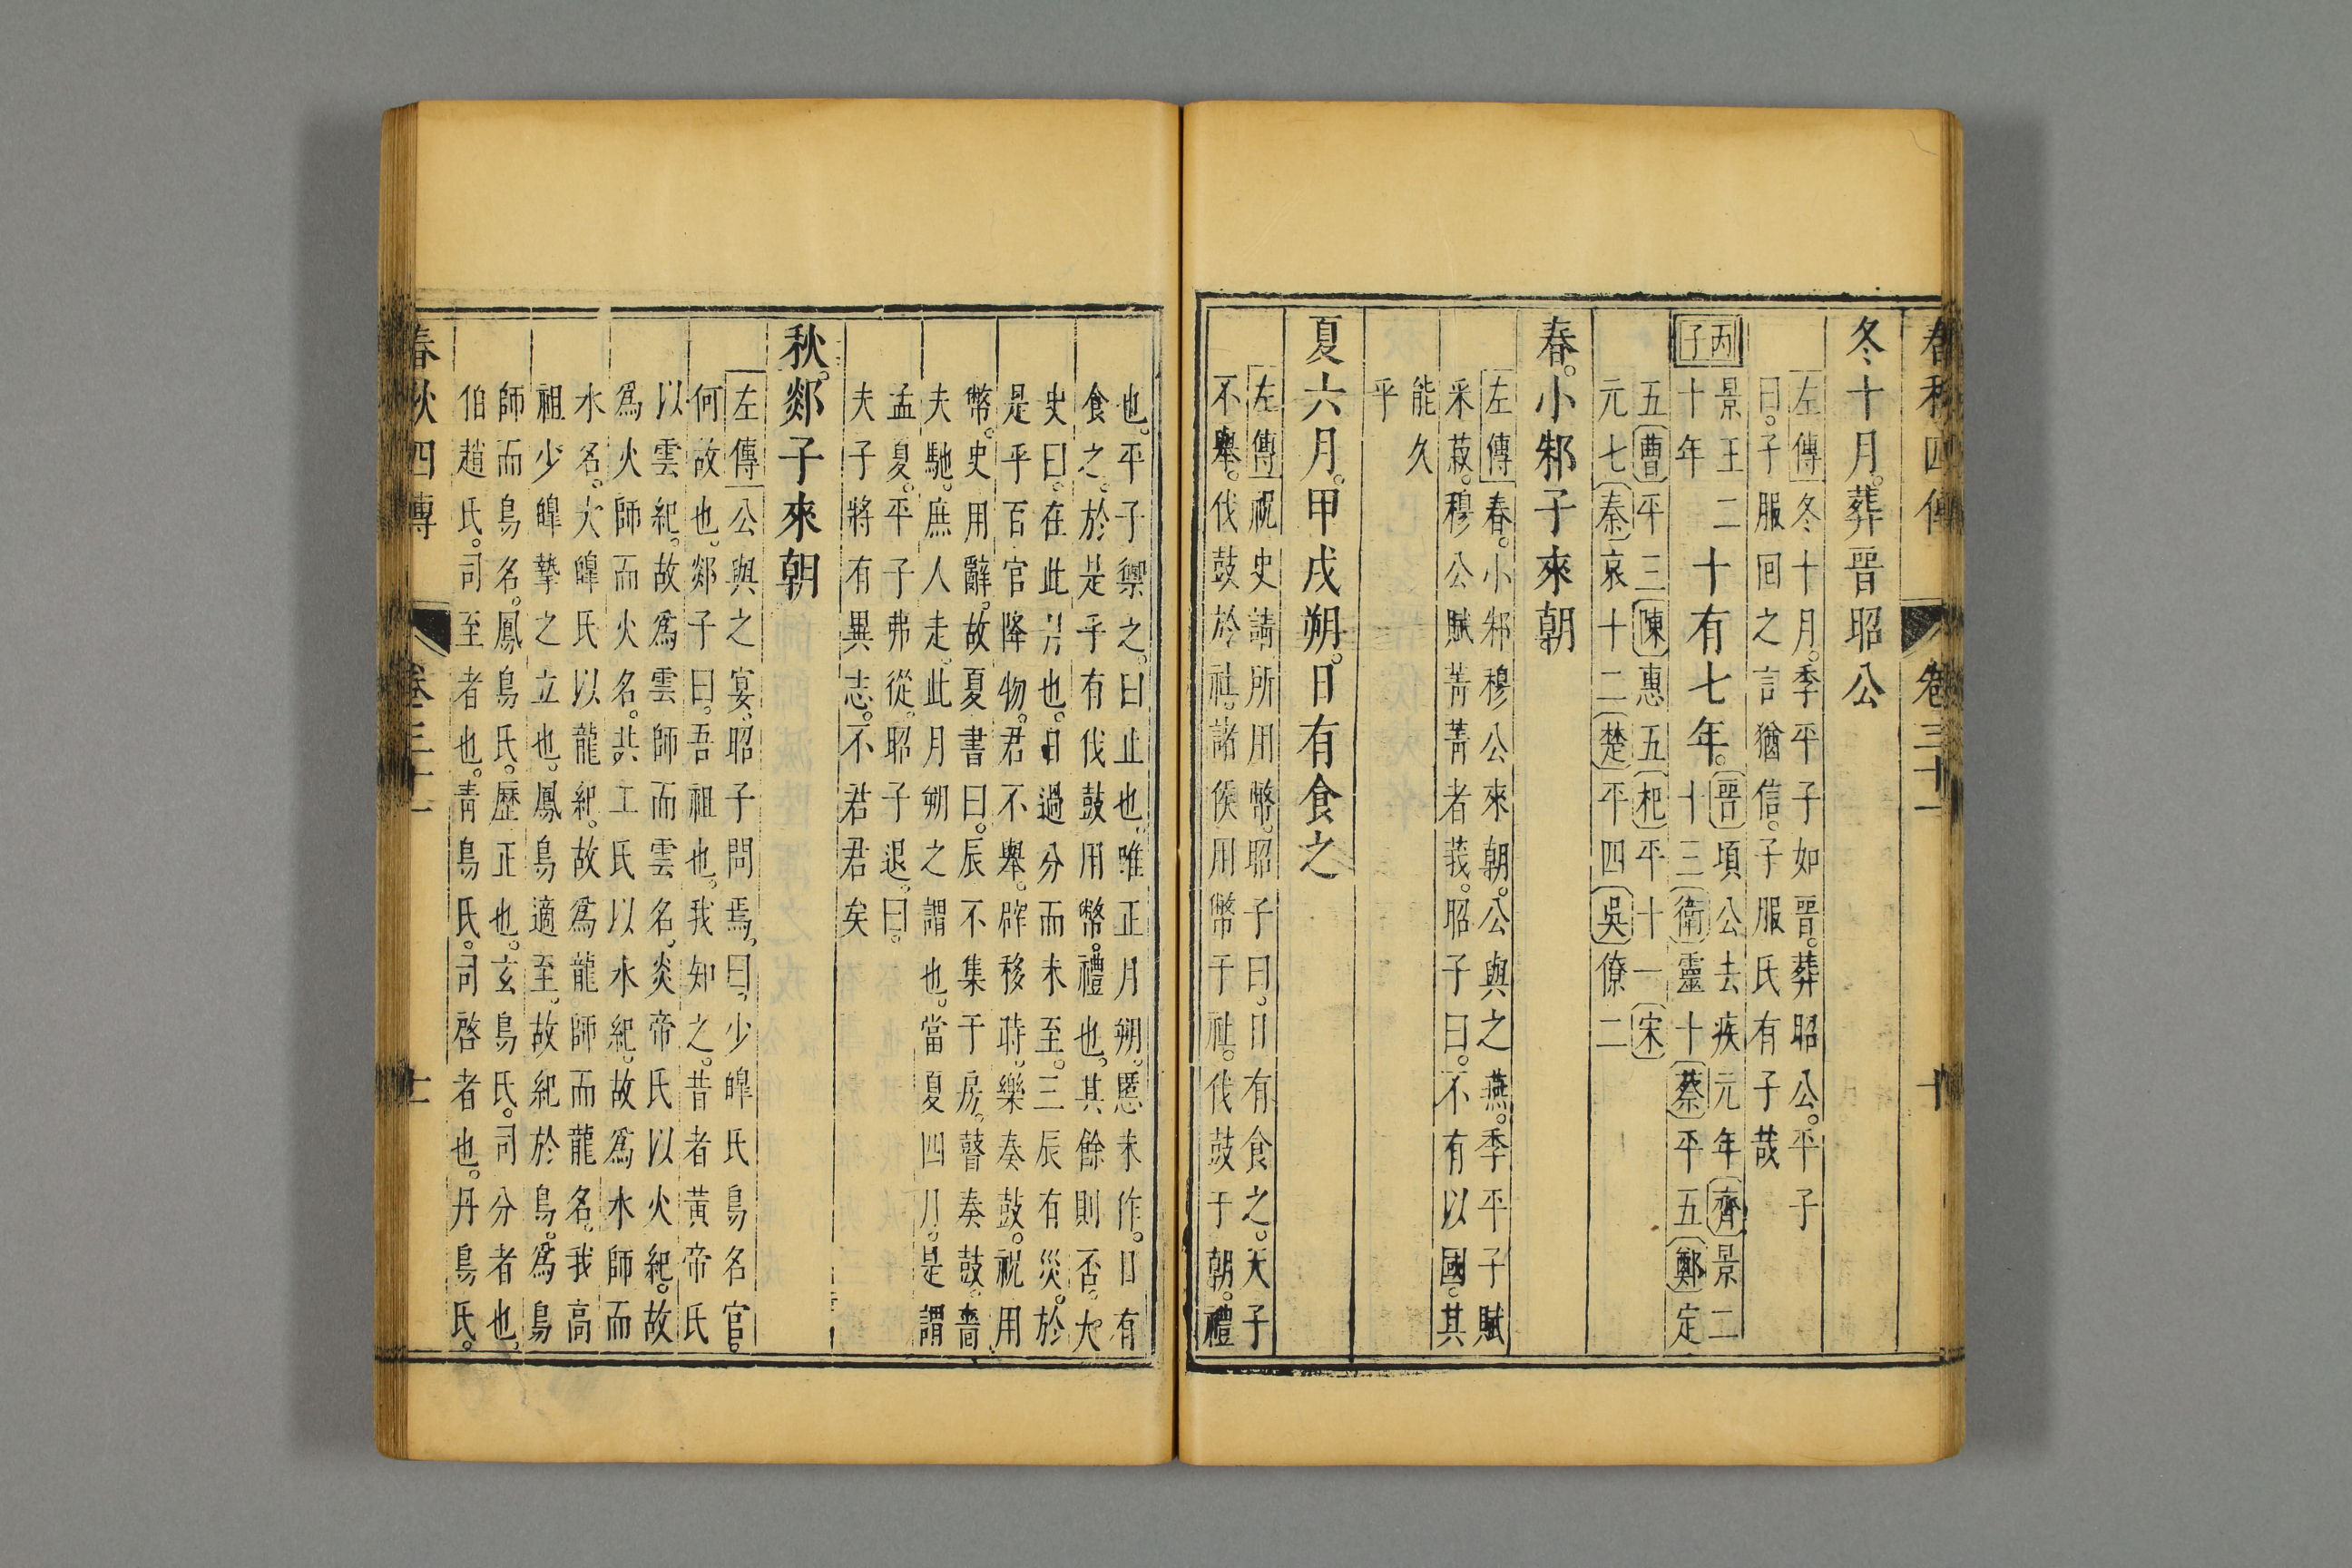 春秋四傳 卷三十一 十
冬十月。葬晉昭公
左傳冬十月。季平子如晉。葬昭公。平子
曰。子服回之言猶信。子服氏有子哉
丙子
景王二
十年
十有七年。
晉頃公去疾元年齊景二
十三衛靈十蔡平五鄭定
五曹平三陳惠五杞平十一宋
元七秦哀十二楚平四吳僚二
春。小邾子來朝
左傳春。小邾穆公來朝。公與之燕。季平子賦
采菽。穆公賦菁菁者莪。昭子曰。不有以國。其
能久
乎
夏六月。甲戌朔。日有食之
左傳祝史請所用幣。昭子曰。日有食之。天子
不舉。伐鼓於社。諸侯用幣于社。伐鼓于朝。禮
也。平子禦之。曰止也。唯正月朔。慝未作。日有
食之。於是乎有伐鼓用幣。禮也。其餘則否。大
史曰。在此月也。日過分而未至。三辰有災。於
是乎百官降物。君不舉。辟移時。樂奏鼓。祝用
幣。史用辭。故夏書曰。辰不集于房。瞽奏鼓。嗇
夫馳。庶人走。此月朔之謂也。當夏四月。是謂
孟夏。平子弗從。昭子退。曰。
夫子將有異志。不君君矣
秋。郯子來朝
左傳公與之宴。昭子問焉。曰。少皥氏鳥名官。
何故也。郯子曰。吾祖也。我知之。昔者黃帝氏
以雲紀。故爲雲師而雲名。炎帝氏以火紀。故
爲火師而火名。共工氏以水紀。故爲水師而
水名。大皥氏以龍紀。故爲龍師而龍名。我高
祖少皥摯之立也。鳳鳥適至。故紀於鳥。爲鳥
師而鳥名。鳳鳥氏。歷正也。玄鳥氏。司分者也。
伯趙氏。司至者也。青鳥氏。司啓者也。丹鳥氏。
春秋四傳 卷三十一 十一